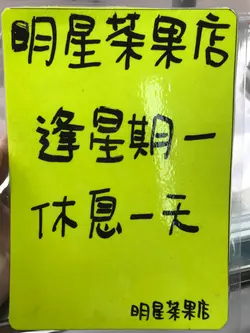 明星茶果店
逢星期一
休息一天
明星茶果店